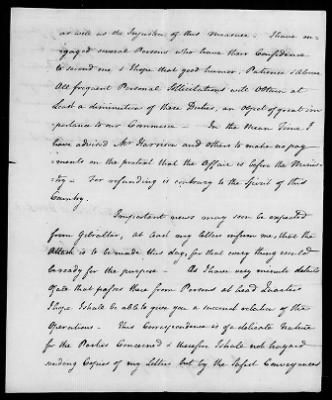 as well as the Injustice of this measure. I have en-
gaged several Persons who have their Confidence
to second me & I hope that good humor, Patience & above
All frequent Personal Solicitations will Obtain at
Least a diminution of these Duties, an Object of great im-
portance to our Commerce — In the Mean Time I
have advised Mr Harrison and others to make no pay-
ments on the pretext that the Affair is before the Minis-
try — For refunding is contrary to the Spirit of this
Country.
Important news may soon be expected
from Gibraltar, at least my letters inform me, that the
Attack is to be made this day, for that every thing would
be ready for the purpose — As I have very minute details
of all that passes there from Persons at Head Quarters
I hope I shall be able to give you a succinct relation of the
Operations — This Correspondence is of a delicate Nature
for the Parties Concerned & therefore I shall not hazard
sending Copies of my Letters but by the Safest Conveyances